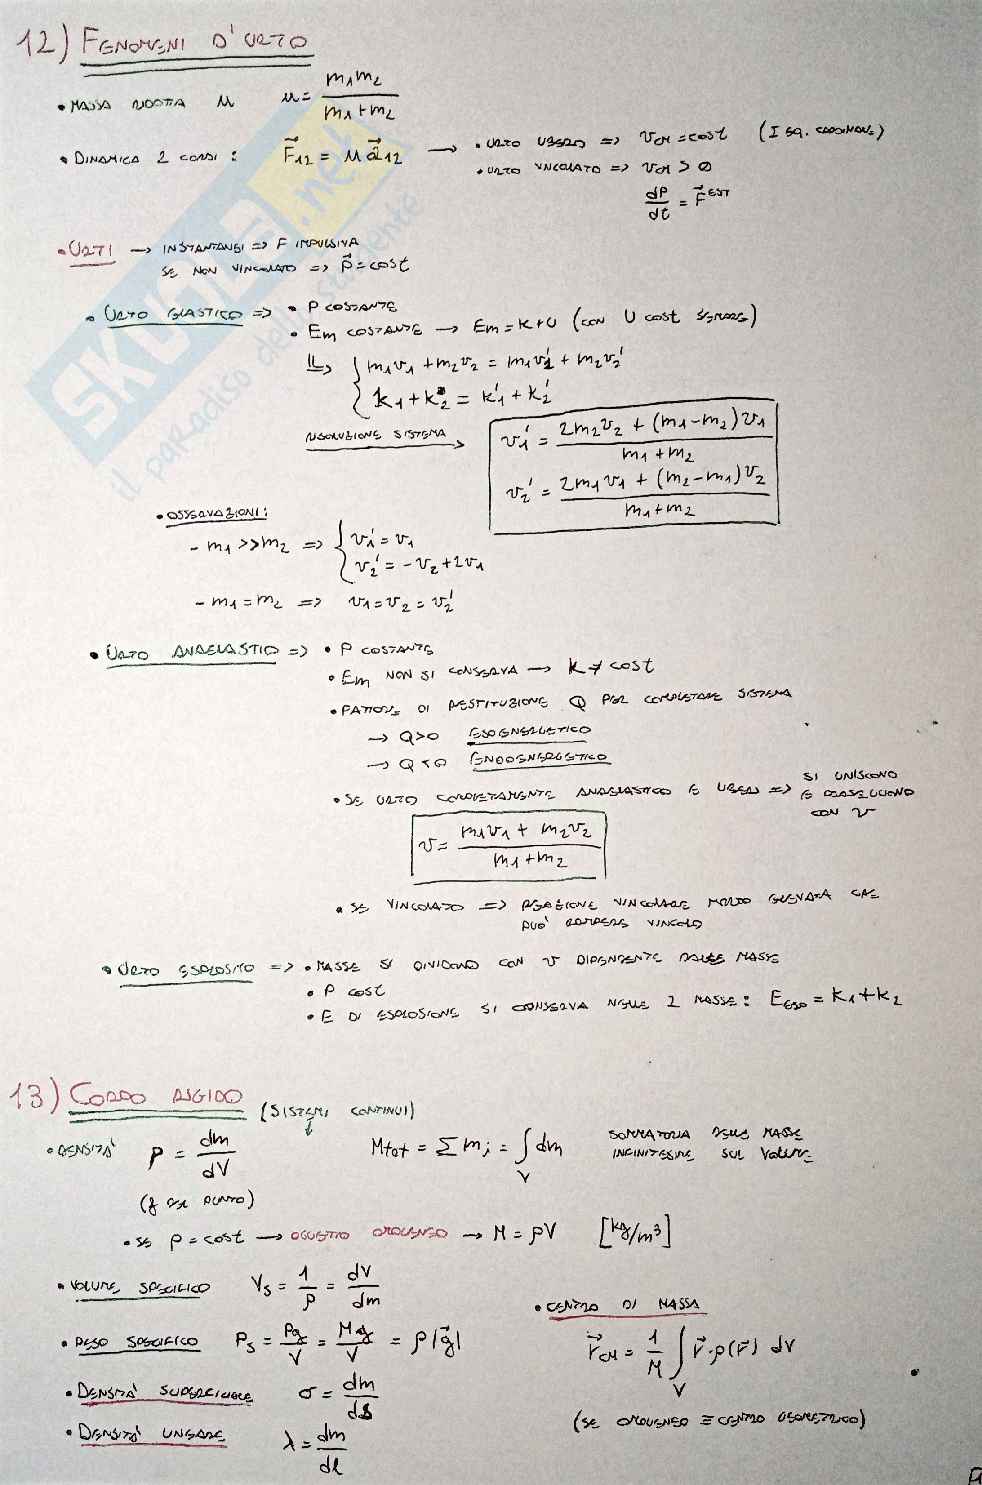 12) FENOMENI D'URTO
• MASSA RIDOTTA μ μ = m1m2 / m1+m2
• DINAMICA 2 CORPI: F12 = μ a12 → • URTO LIBERO => vCM = cost (I EQ. CARDINALE)
• URTO VINCOLATO => vCM > 0
dP/dt = F EST
• URTI → INSTANTANEI => F IMPULSIVA
SE NON VINCOLATO => P = cost
• URTO ELASTICO => • P COSTANTE
• Em COSTANTE → Em = K+U (CON U cost SEMPRE)
=> { m1v1 + m2v2 = m1v1' + m2v2'
K1 + K2 = K1' + K2'
RISOLUZIONE SISTEMA →
v1' = 2m2v2 + (m1-m2)v1 / m1+m2
v2' = 2m1v1 + (m2-m1)v2 / m1+m2
• OSSERVAZIONI:
- m1 >> m2 => { v1' = v1
v2' = -v2+2v1
- m1 = m2 => v1 = v2 = v2'
• URTO ANAELASTIO => • P COSTANTE
• Em NON SI CONSERVA → K ≠ cost
• FATTORE DI RESTITUZIONE Q PER COMPLETARE SISTEMA
→ Q>0 ESOENERGETICO
→ Q<0 ENDOENERGETICO
• SE URTO COMPLETAMENTE ANAELASTICO E LIBERO => SI UNISCONO E PROSEGUONO CON v
v = m1v1 + m2v2 / m1+m2
• SE VINCOLATO => REAZIONE VINCOLARE MOLTO ELEVATA CHE
PUÒ ROMPERE VINCOLO
• URTO ESPLOSIVO => • MASSE SI DIVIDONO CON v DIPENDENTE DALLE MASSE
• P cost
• E DI ESPLOSIONE SI CONSERVA NELLE 2 MASSE: EESP = K1+K2
13) CORPO RIGIDO (SISTEMI CONTINUI)
• DENSITÀ ρ = dm/dV Mtot = Σ mi = ∫V dm SOMMATORIA DELLE MASSE
INFINITESIME SUL VOLUME
(ρ DEL PUNTO)
• SE ρ = cost → OGGETTO OMOGENEO → M = ρV [kg/m³]
• VOLUME SPECIFICO Vs = 1/ρ = dV/dm
• PESO SPECIFICO Ps = Pg/V = Mg/V = ρ|g|
• DENSITÀ SUPERFICIALE σ = dm/dS
• DENSITÀ LINEARE λ = dm/dl
• CENTRO DI MASSA
rCM = 1/M ∫V r·ρ(r) dV
(SE OMOGENEO ≡ CENTRO GEOMETRICO)
SKUOLA.net
il paradiso dello studente